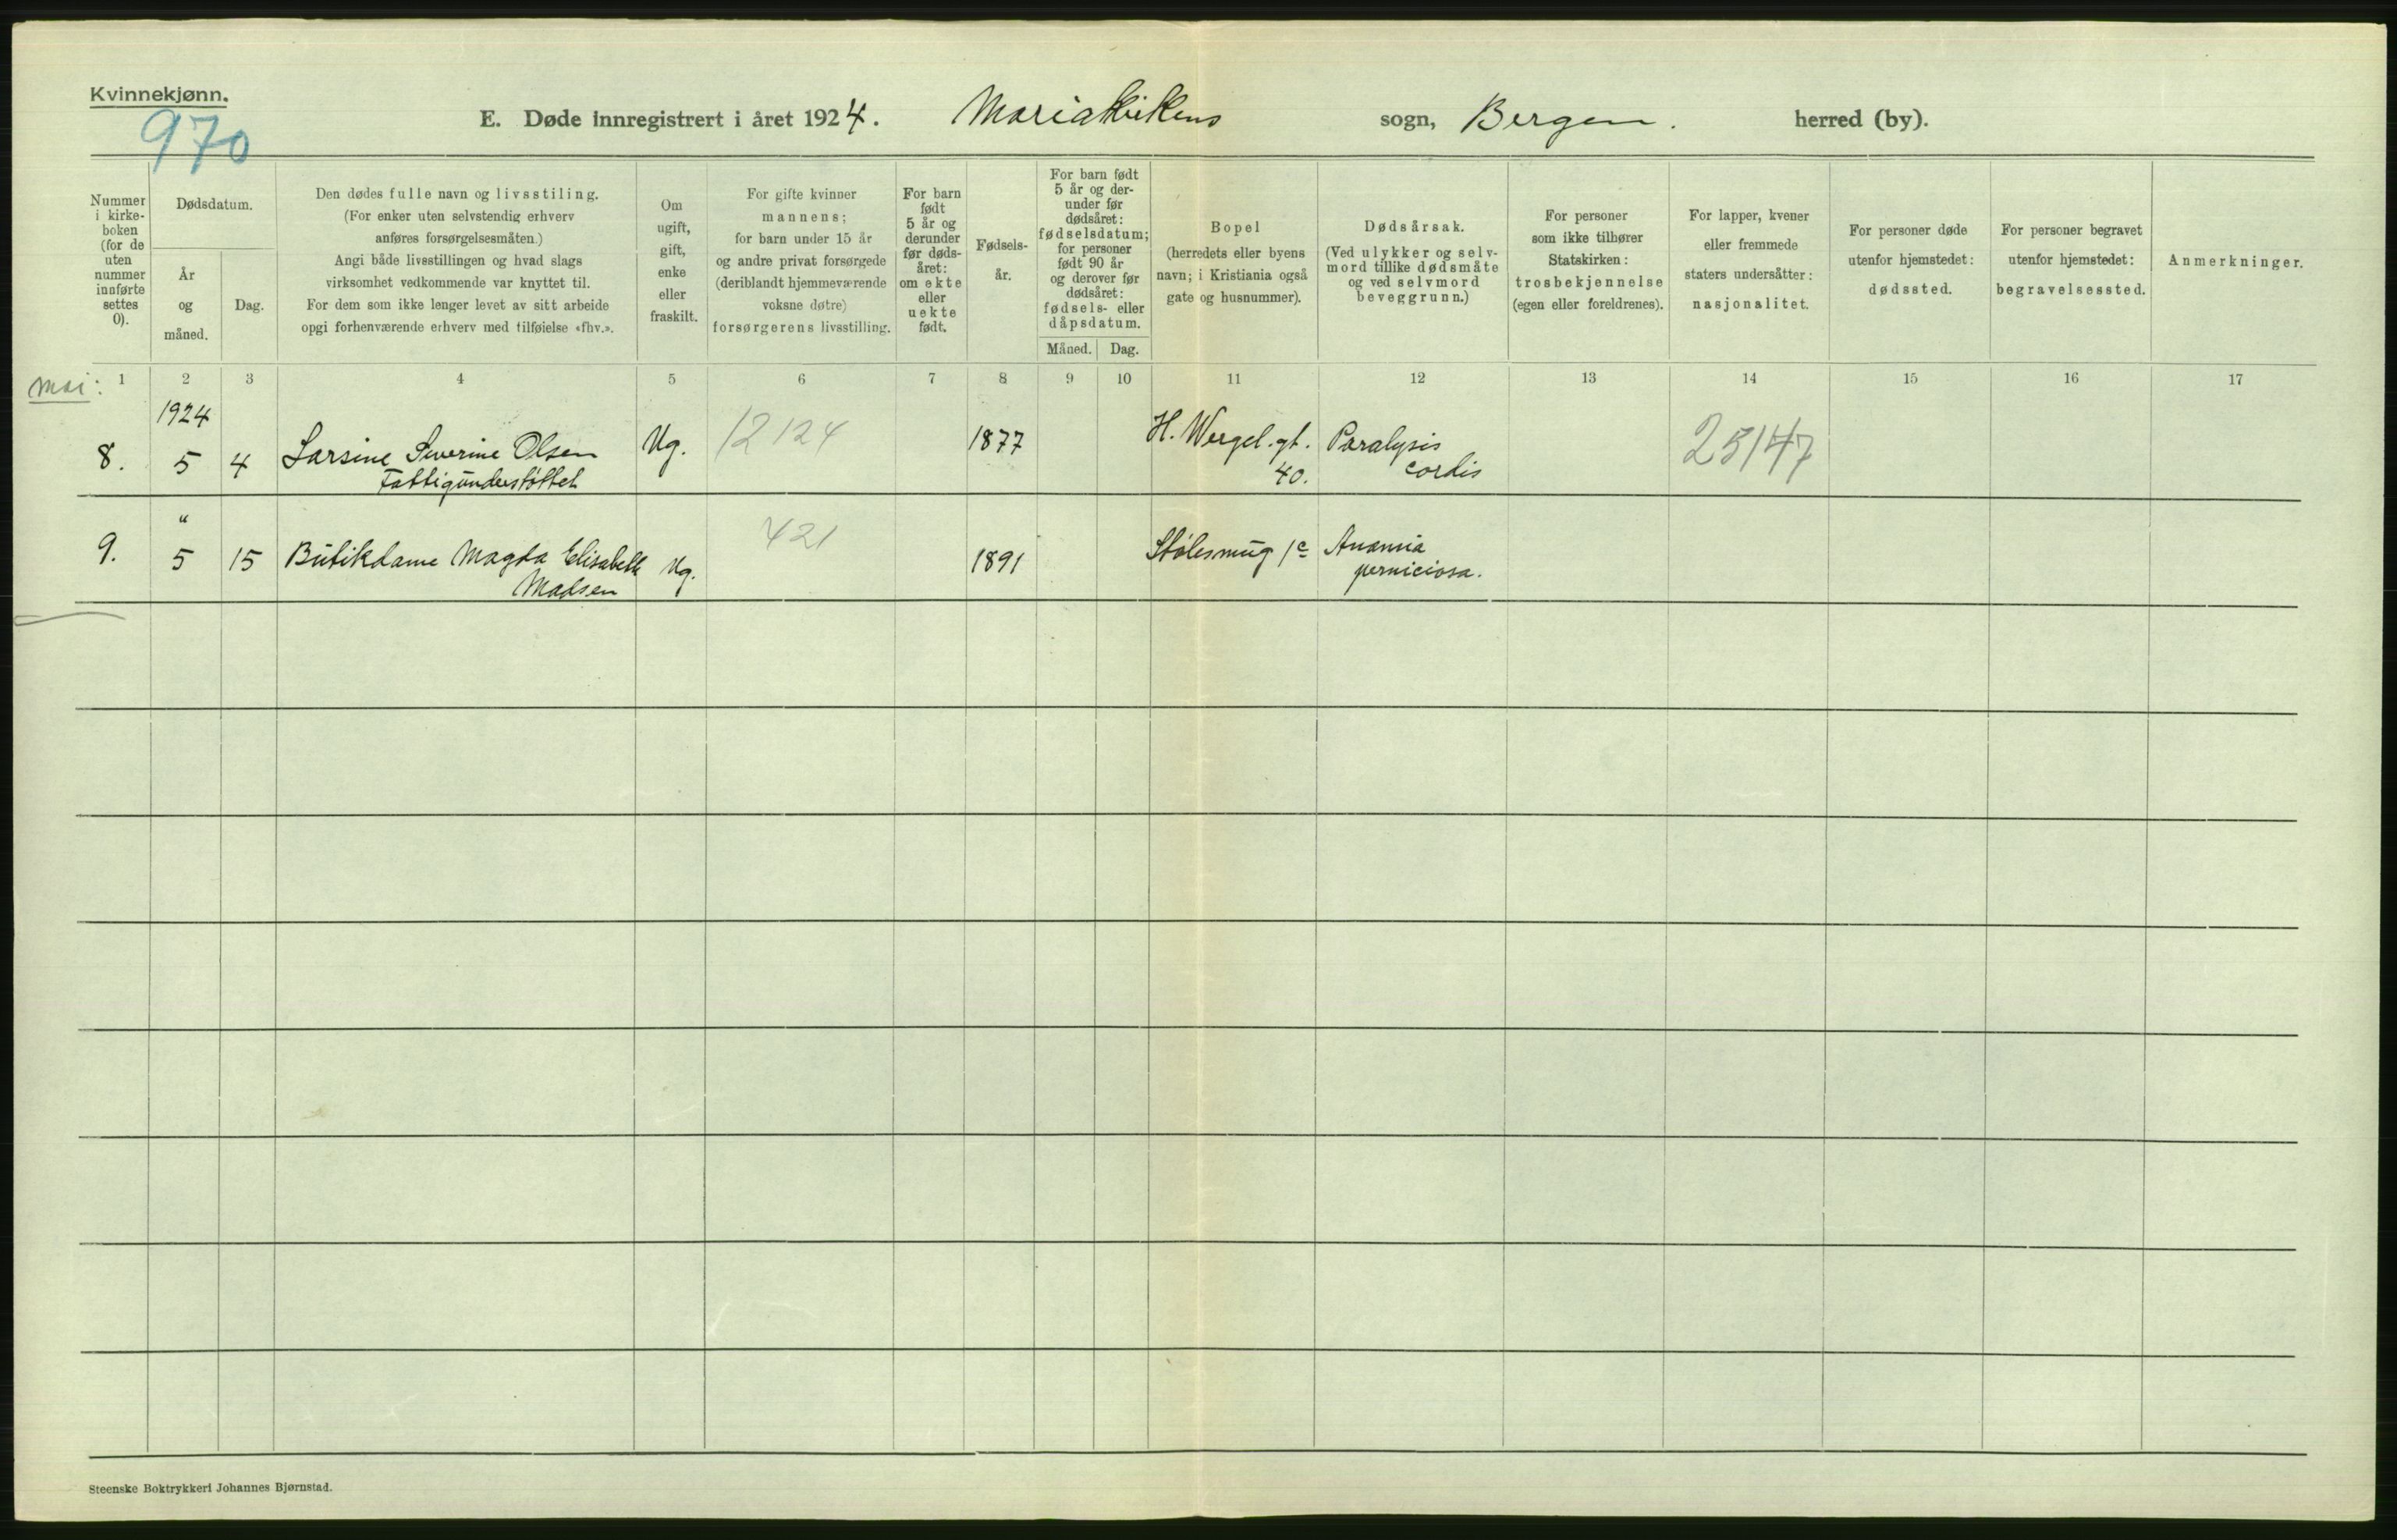 Kvinnekjønn.
970
E. Døde innregistrert i året 1924. Mariakirkens sogn, Bergen. herred (by).
Nummer
i kirke-
boken
(for de
uten
nummer
innførte
settes
0).
Dødsdatum.
År
og
måned.
Dag.
Den dødes fulle navn og livsstiling.
(For enker uten selvstendig erhverv
anføres forsørgelsesmåten.)
Angi både livsstillingen og hvad slags
virksomhet vedkommende var knyttet til.
For dem som ikke lenger levet av sitt arbeide
opgi forhenværende erhverv med tilføielse «fhv.».
Om
ugift,
gift,
enke
eller
fraskilt.
For gifte kvinner
mannens;
for barn under 15 år
og andre privat forsørgede
(deriblandt hjemmeværende
voksne døtre)
forsørgerens livsstilling.
For barn
født
5 år og
derunder
før døds-
året:
om ekte
eller
uekte
født.
Fødsels-
år.
For barn født
5 år og der-
under før
dødsåret:
fødselsdatum;
for personer
født 90 år
og derover før
dødsåret:
fødsels- eller
dåpsdatum.
Måned. Dag.
Bopel
(herredets eller byens
navn; i Kristiania også
gate og husnummer).
Dødsårsak.
(Ved ulykker og selv-
mord tillike dødsmåte
og ved selvmord
beveggrunn.)
For personer
som ikke tilhører
Statskirken:
trosbekjennelse
(egen eller foreldrenes).
For lapper, kvener
eller fremmede
staters undersåtter:
nasjonalitet.
For personer døde
utenfor hjemstedet:
dødssted.
For personer begravet
utenfor hjemstedet:
begravelsessted.
Anmerkninger.
mai: 1 2 3 4 5 6 7 8 9 10 11 12 13 14 15 16 17
1924
8. 5 4 Larsine Severine Olsen Ug. 12124 1877 H. Wergel. gt. Paralysis 25147
Fattigünderstöttet 40. cordis
"
9. 5 15 Bütikdame Magda Elisabeth Ug. 421 1891 Stølesmüg 1c Anæmia
Madsen perniciosa.
Steenske Boktrykkeri Johannes Bjørnstad.